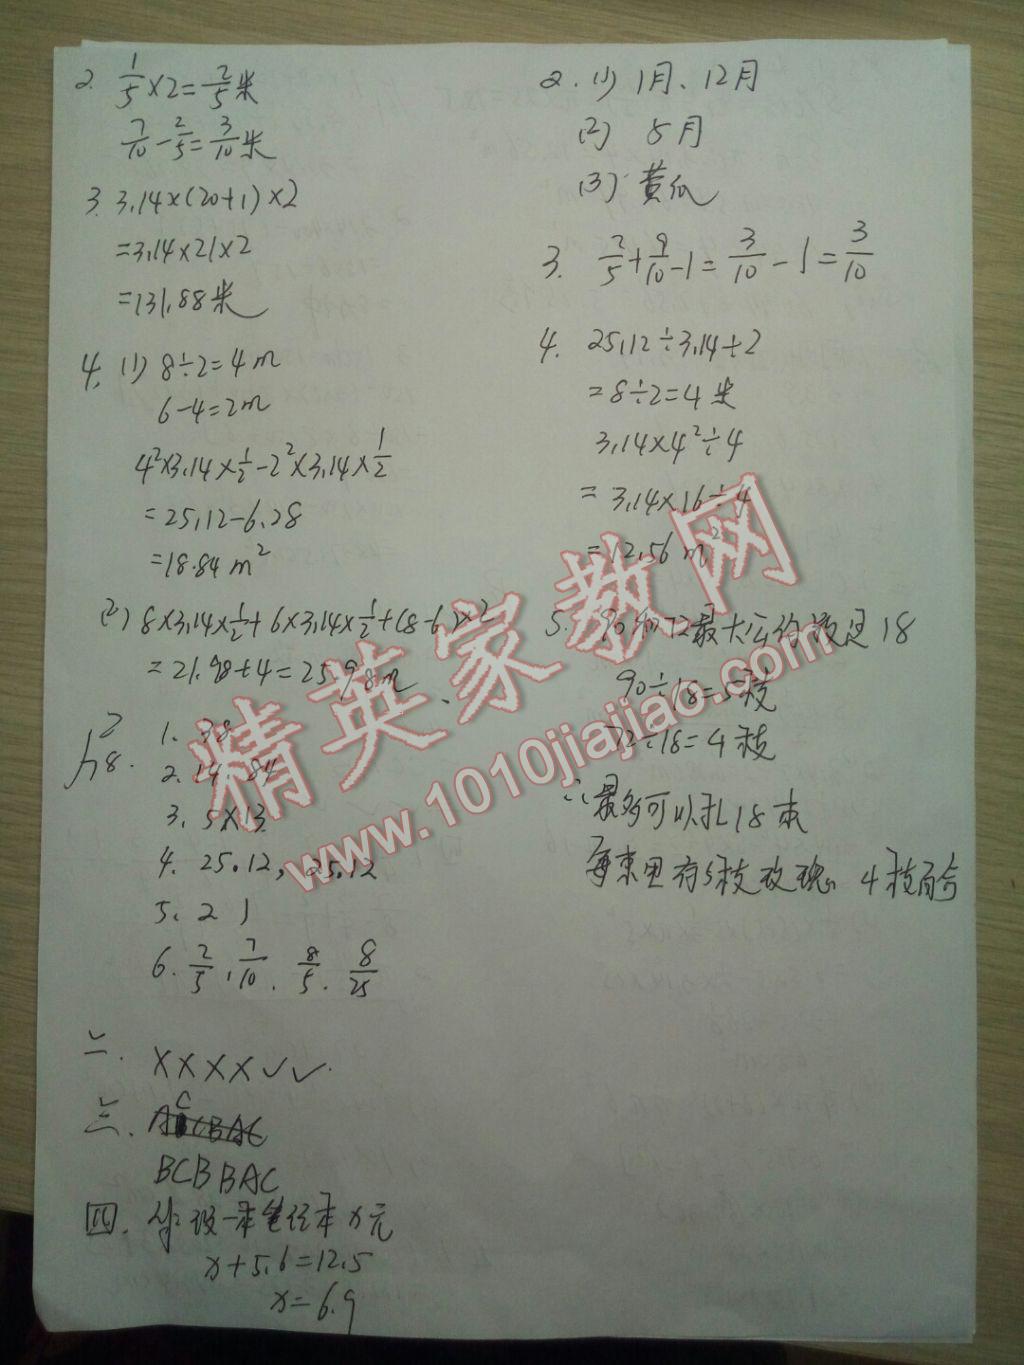 2. 1/5×2=2/5米
7/10-2/5=3/10米
3. 3.14×(20+1)×2
=3.14×21×2
=131.88米
4. (1) 8÷2=4m
6-4=2m
4²×3.14×1/2-2²×3.14×1/2
=25.12-6.28
=18.84m²
(2) 8×3.14×1/2+6×3.14×1/2+(8-6)×2
=21.98+4=25.98m
1. 38
2. 14 84
3. 5×13
4. 25.12, 25.12
5. 2 1
6. 2/5, 7/10, 8/5, 8/25
二. ××××✓✓.
三.
BCBBAC
四. 解:设一本笔记本x元
x+5.6=12.5
x=6.9
2. (1) 1月、12月
(2) 8月
(3) 黄瓜
3. 2/5+9/10-1=3/10-1=3/10
4. 25.12÷3.14÷2
=8÷2=4米
3.14×4²÷4
=3.14×16÷4
=12.56m²
5. 90和72最大公约数是18
90÷18=5枝
72÷18=4枝
∴最多可以扎18束
每束里有5枝玫瑰, 4枝百合
精英家教网
www.1010jiajiao.com